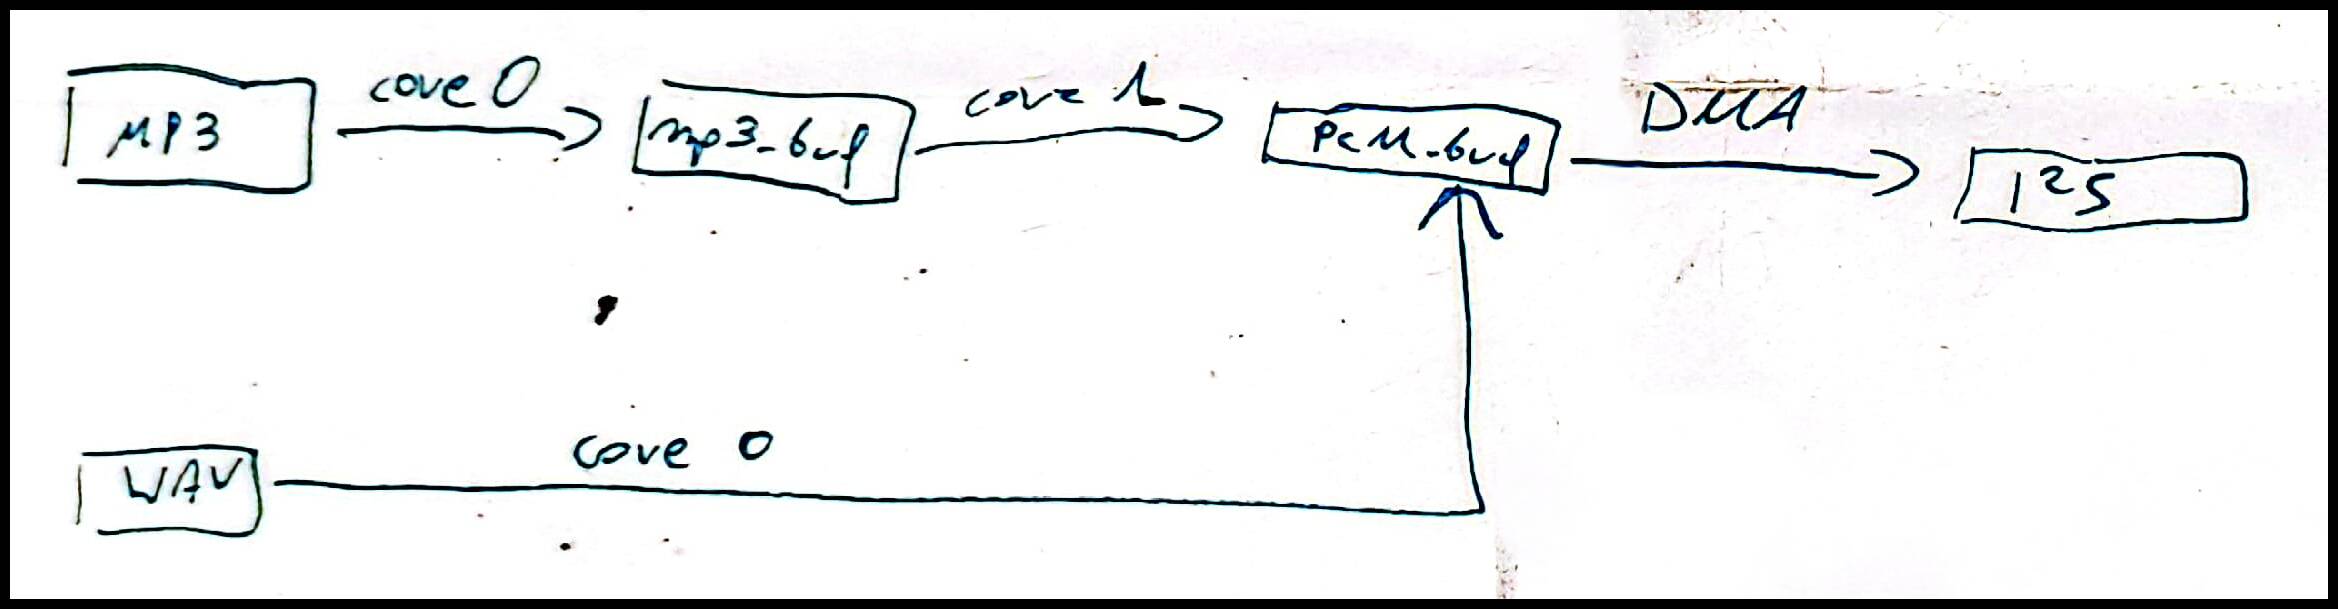 MP3
core 0
mp3_buf
core 1
PCM_buf
DMA
I²S
WAV
core 0